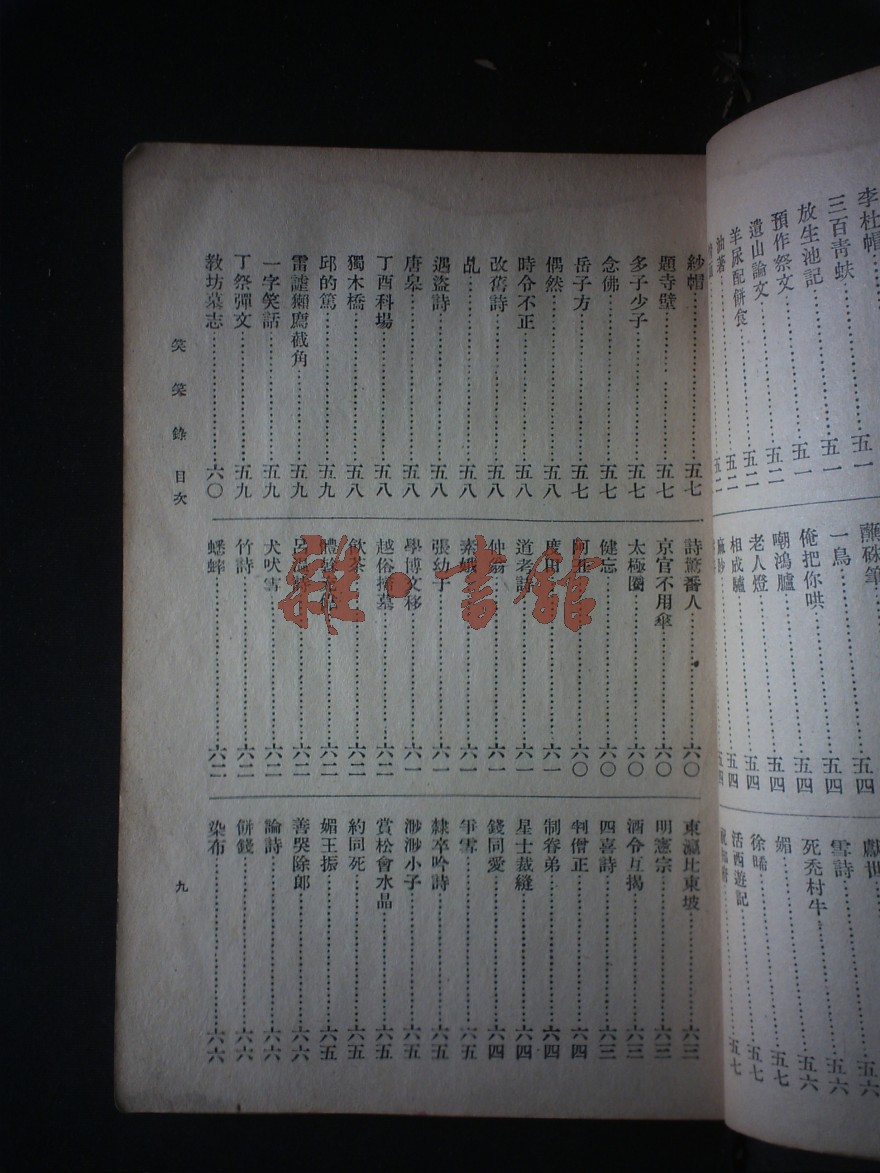 李杜帽……五一
三百青蚨……五一
放生池記……五一
預作祭文……五二
遺山論文……五二
羊尿配餅食……五二
蘸硃筆……五四
一鳥……五四
俺把你哄……五四
嘲鴻臚……五四
老人燈……五四
相成驢……五四
獻世……五六
雪詩……五六
死禿村牛……五六
媚……五七
徐晞……五七
活西遊記……五七
紗帽……五七
題寺壁……五七
多子少子……五七
念佛……五七
岳子方……五七
偶然……五八
時令不正……五八
改舊詩……五八
乩……五八
遇盜詩……五八
唐皋……五八
丁酉科場……五八
獨木橋……五八
邱的篤……五九
雷謔獺鷹截角……五九
一字笑話……五九
丁祭彈文……五九
教坊墓志……六〇
詩驚番人……六〇
京官不用傘……六〇
太極圈……六〇
健忘……六〇
六〇
六一
道者詩……六一
仲翁……六一
素娥……六一
張幼于……六一
學博文移……六一
越俗掃墓……六二
飲茶……六二
六二
六二
犬吠雪……六二
竹詩……六二
蟋蟀……六二
東瀛比東坡……六三
明憲宗……六三
酒令互揭……六三
四喜詩……六三
判僧正……六四
制眷弟……六四
星士裁縫……六四
錢同愛……六四
爭雪……六五
隸卒吟詩……六五
渺渺小子……六五
賞松會水晶……六五
約同死……六五
媚王振……六五
善哭除郎……六六
論詩……六六
併錢……六六
染布……六六
笑笑錄 目次
九
雜·書館